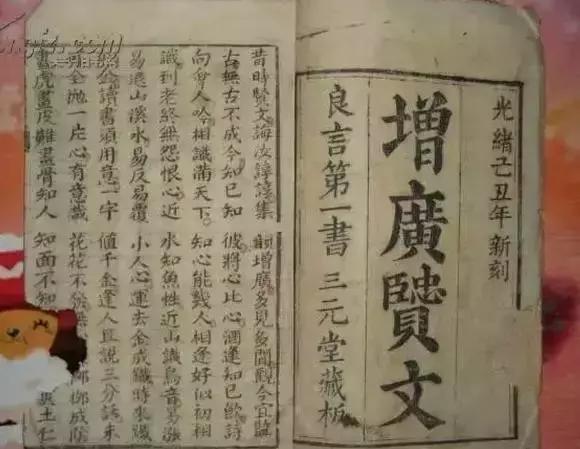 光緒己丑年新刻
增廣賢文
良言第一書 三元堂藏板
昔時賢文誨汝諄諄集 韻增廣多見多聞觀今宜鑒
古無古不成今知己知 彼將心比心酒逢知己飲詩
向會人吟相識滿天下 知心能幾人相逢好似初相
識到老終無怨恨心近 水知魚性近山識鳥音易漲
易退山溪水易反易覆 小人心運去金成鐵時來鐵
似金讀書須用意一字 值千金逢人且說三分話未
可全拋一片心有意栽 花花不發無 柳柳成陰
畫虎畫皮難畫骨知人 知面不知 土仁